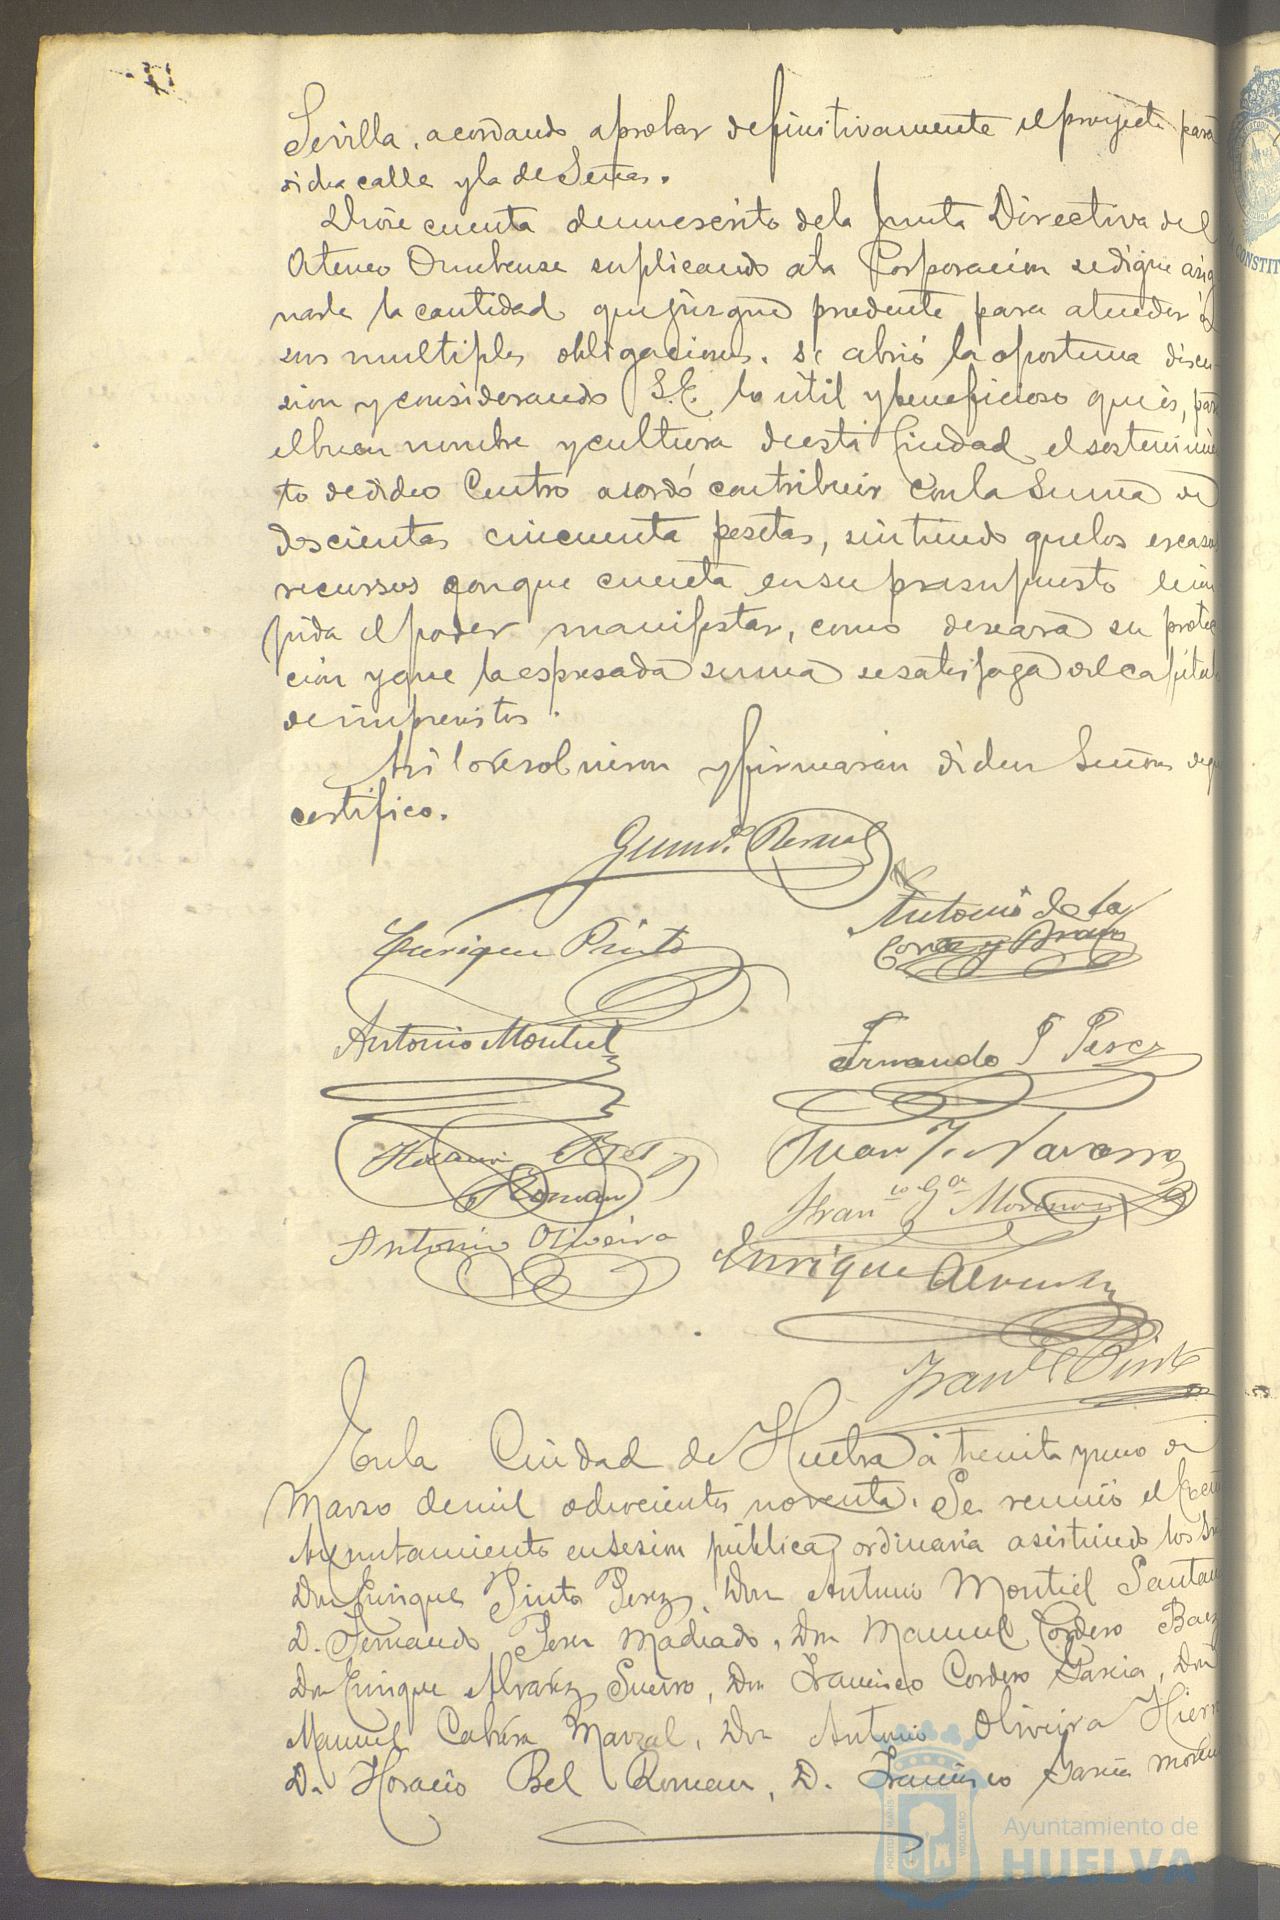 Sevilla, acordando aprobar definitivamente el proyecto para
dicha calle y la de Señas.
Dióse cuenta de un escrito de la Junta Directiva del
Ateneo Onubense suplicando a la Corporación se digne asig
narle la cantidad que juzgue prudente para atender á
sus multiples obligaciones. Se abrió la oportuna discu-
sion y considerando S.E. lo útil y beneficioso que es, para
el buen nombre y cultura de esta Ciudad el sostenimien
to de dicho Centro acordó contribuir con la suma de
doscientas cincuenta pesetas, sintiendo que los escasos
recursos con que cuenta en su presupuesto le im
pida el poder manifestar, como deseara su protec
ción y que la espresada suma se satisfaga del capitulo
de imprevistos.
Asi lo resolvieron y firmarán dichos Señores de que
certifico.
Gumdo. Bernal
Antonio de la
Corte y Bravo
Enrique Pinto
Antonio Montiel
Fernando P Perez
Horacio Bel
Roman
Juan J. Navarro
Franco Ga Moreno
Antonio Oliveira
Enrique Alvarez
Pinto
En la Ciudad de Huelva á treinta y uno de
Marzo de mil ochocientos noventa. Se reunió el Excmo
Ayuntamiento en sesion pública ordinaria asistiendo los Sres
Don Enrique Pinto Perez, Don Antonio Montiel
D. Fernando Perez Machado, Don Manuel Cordero Baez
Don Enrique Alvarez Suero, Don Francisco Cordero Garcia, Don
Manuel Cabrera Marzal, Don Antonio Oliveira Hierro
D. Horacio Bel Roman, D. Francisco Garcia Moreno
CONSTIT
Ayuntamiento de
HUELVA